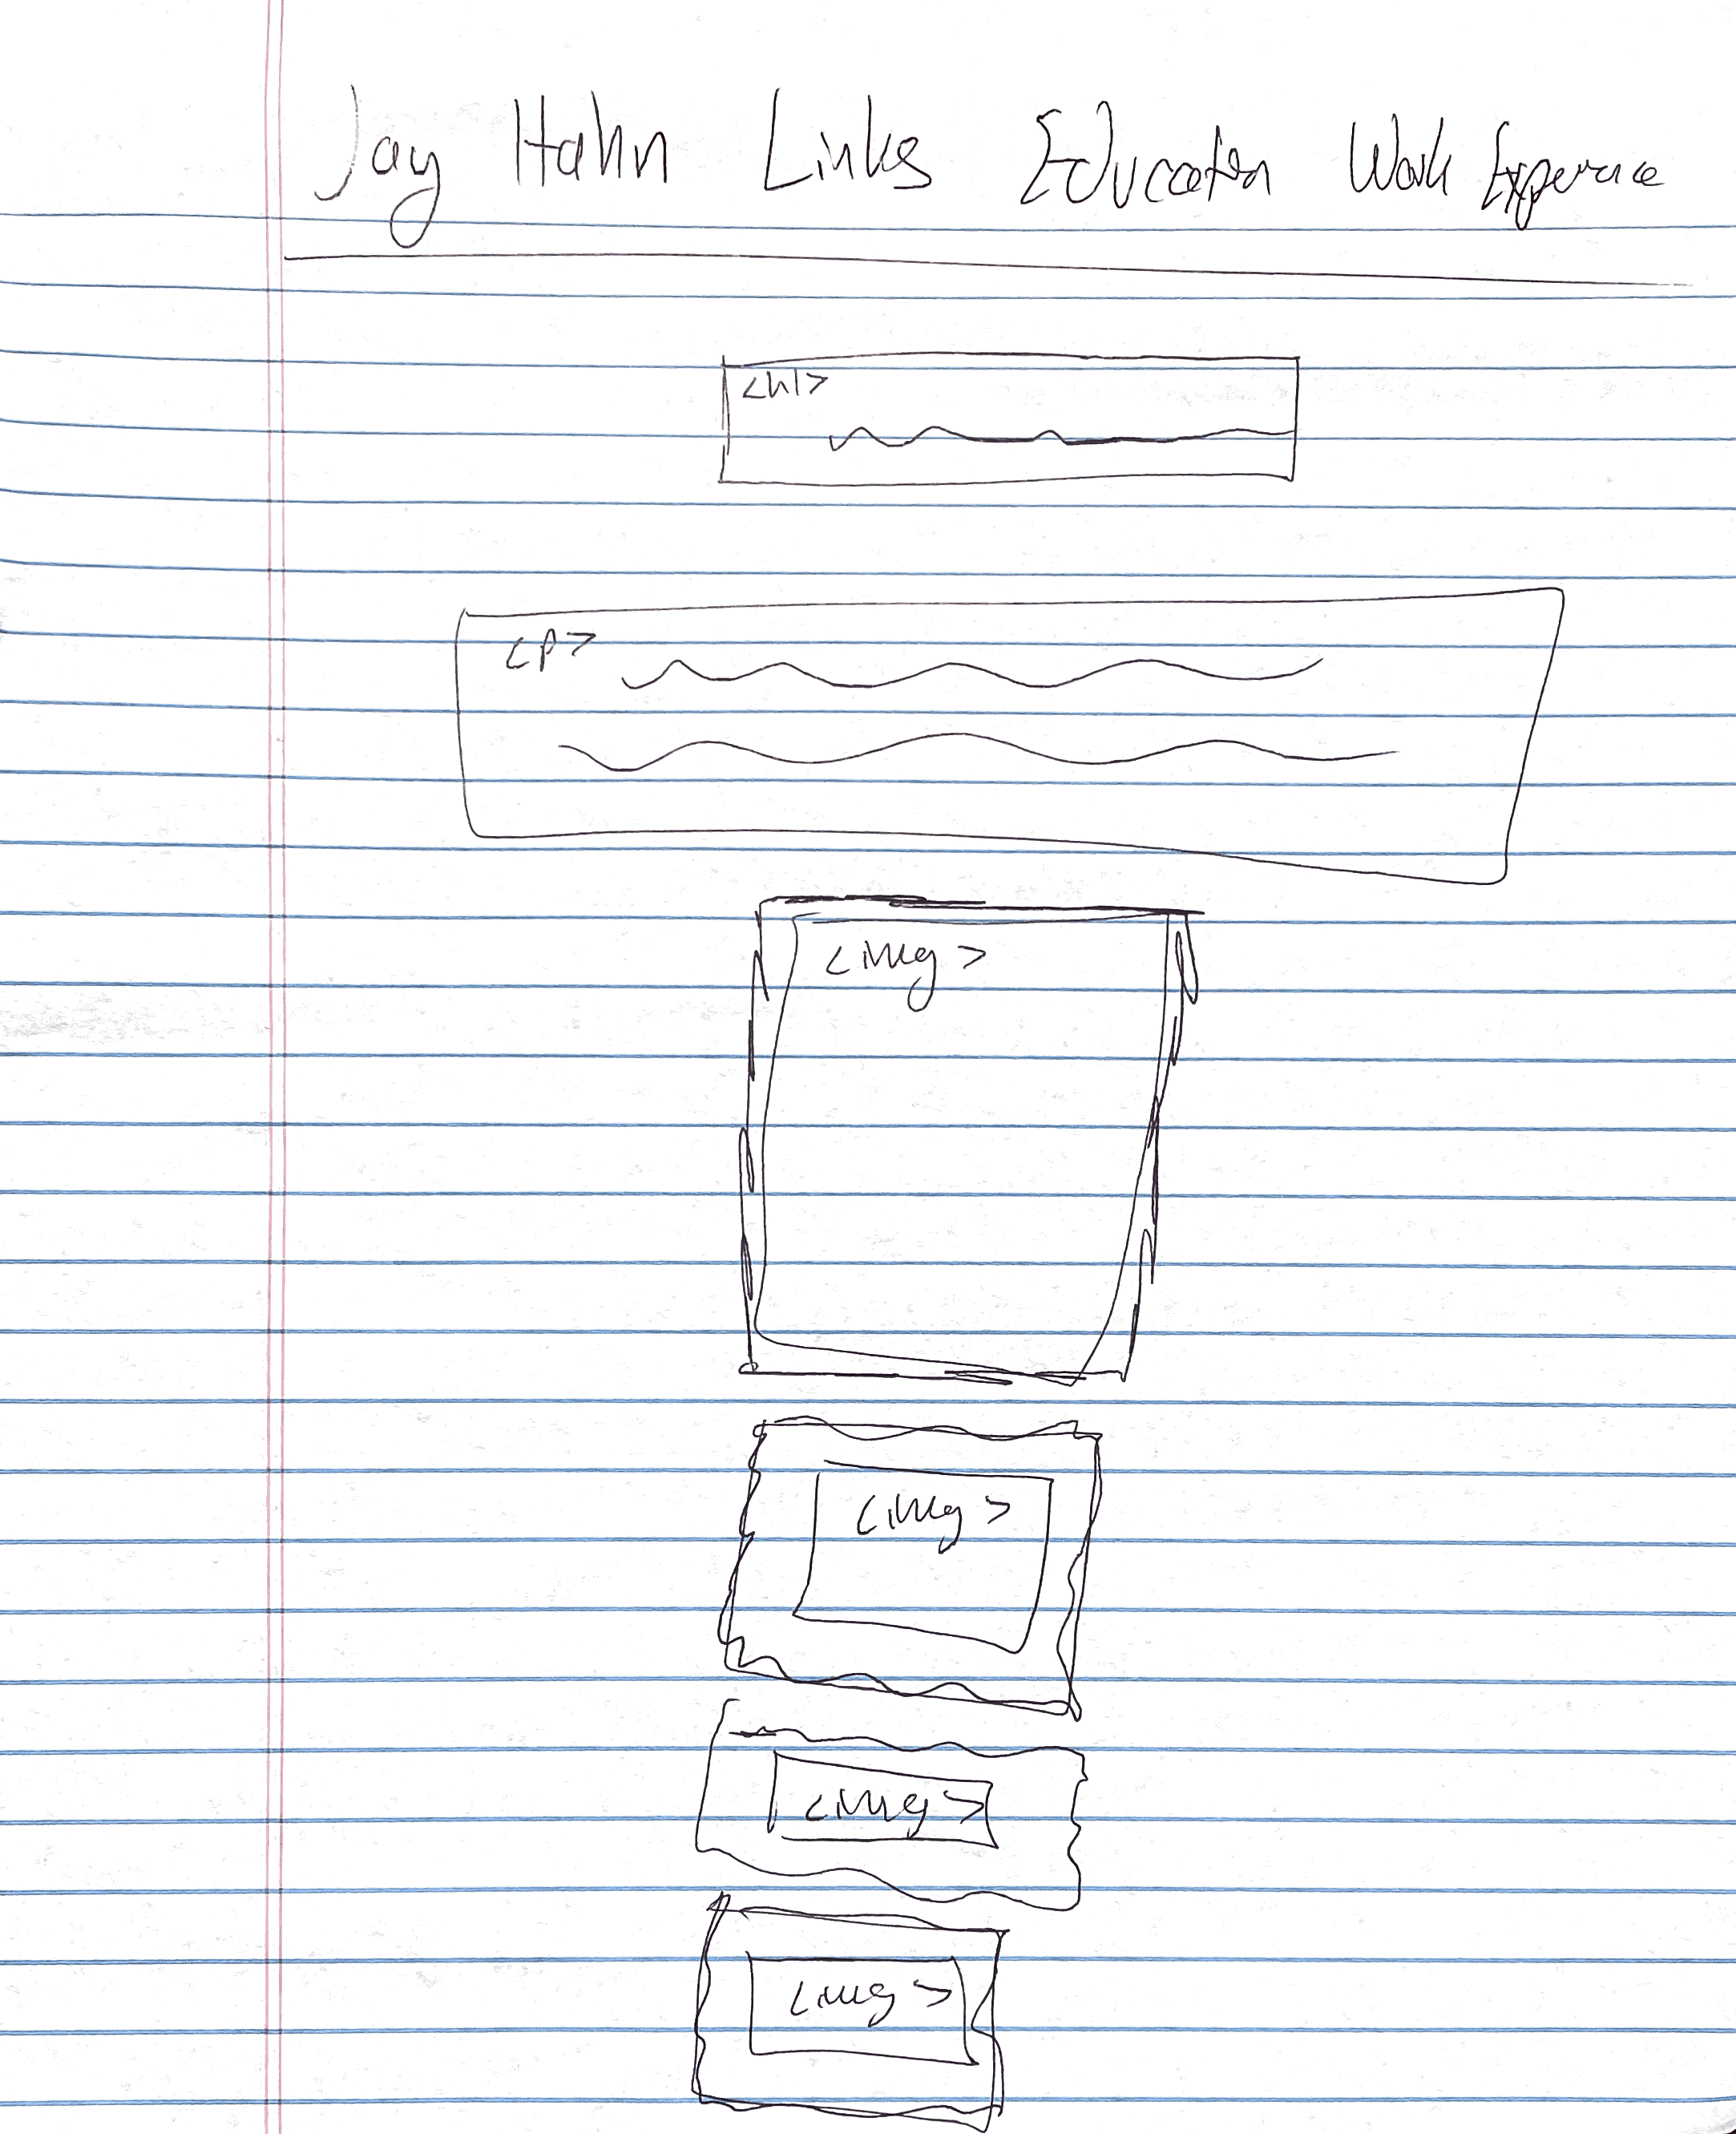 Jay Hahn Links Education Work Experience
<h1>
<p>
<img>
<img>
<img>
<img>